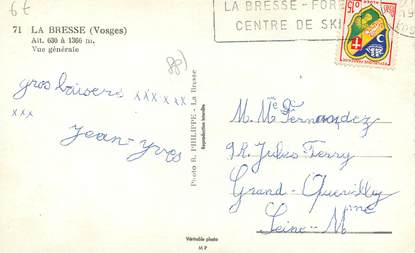 6€
71 LA BRESSE (Vosges)
Alt. 630 à 1366 m.
Vue générale
(88)
LA BRESSE - FORE
CENTRE DE SKI
gros baisers xxx x xx
xxx
Jean-Yves
Photo B. PHILIPPE - La Bresse
Reproduction interdite
M. Mme Fernandez
9 R. Jules Ferry
Grand-Quevilly
Seine-Mme
Véritable photo
M P